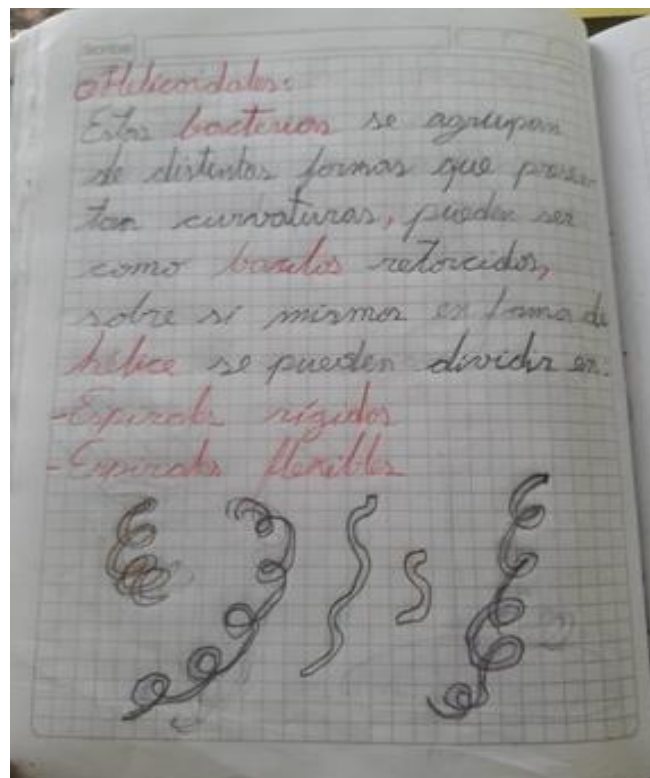 Scribe
Helicoidales:
Estas bacterias se agrupan
de distintas formas que presen
tan curvaturas, pueden ser
como bacilos retorcidos,
sobre si mismos en forma de
hélice se pueden dividir en:
-Espirales rígidos
-Espirales flexibles